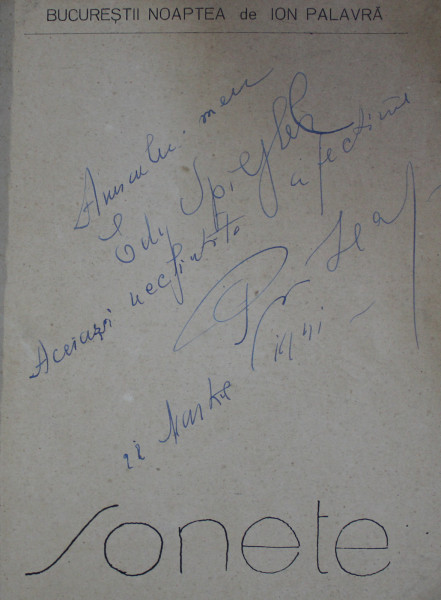 BUCUREȘTII NOAPTEA de ION PALAVRĂ
Amicului meu
Edy Spieghel
Aceiași neclintită afecțiune
22 Martie 1991
Sonete